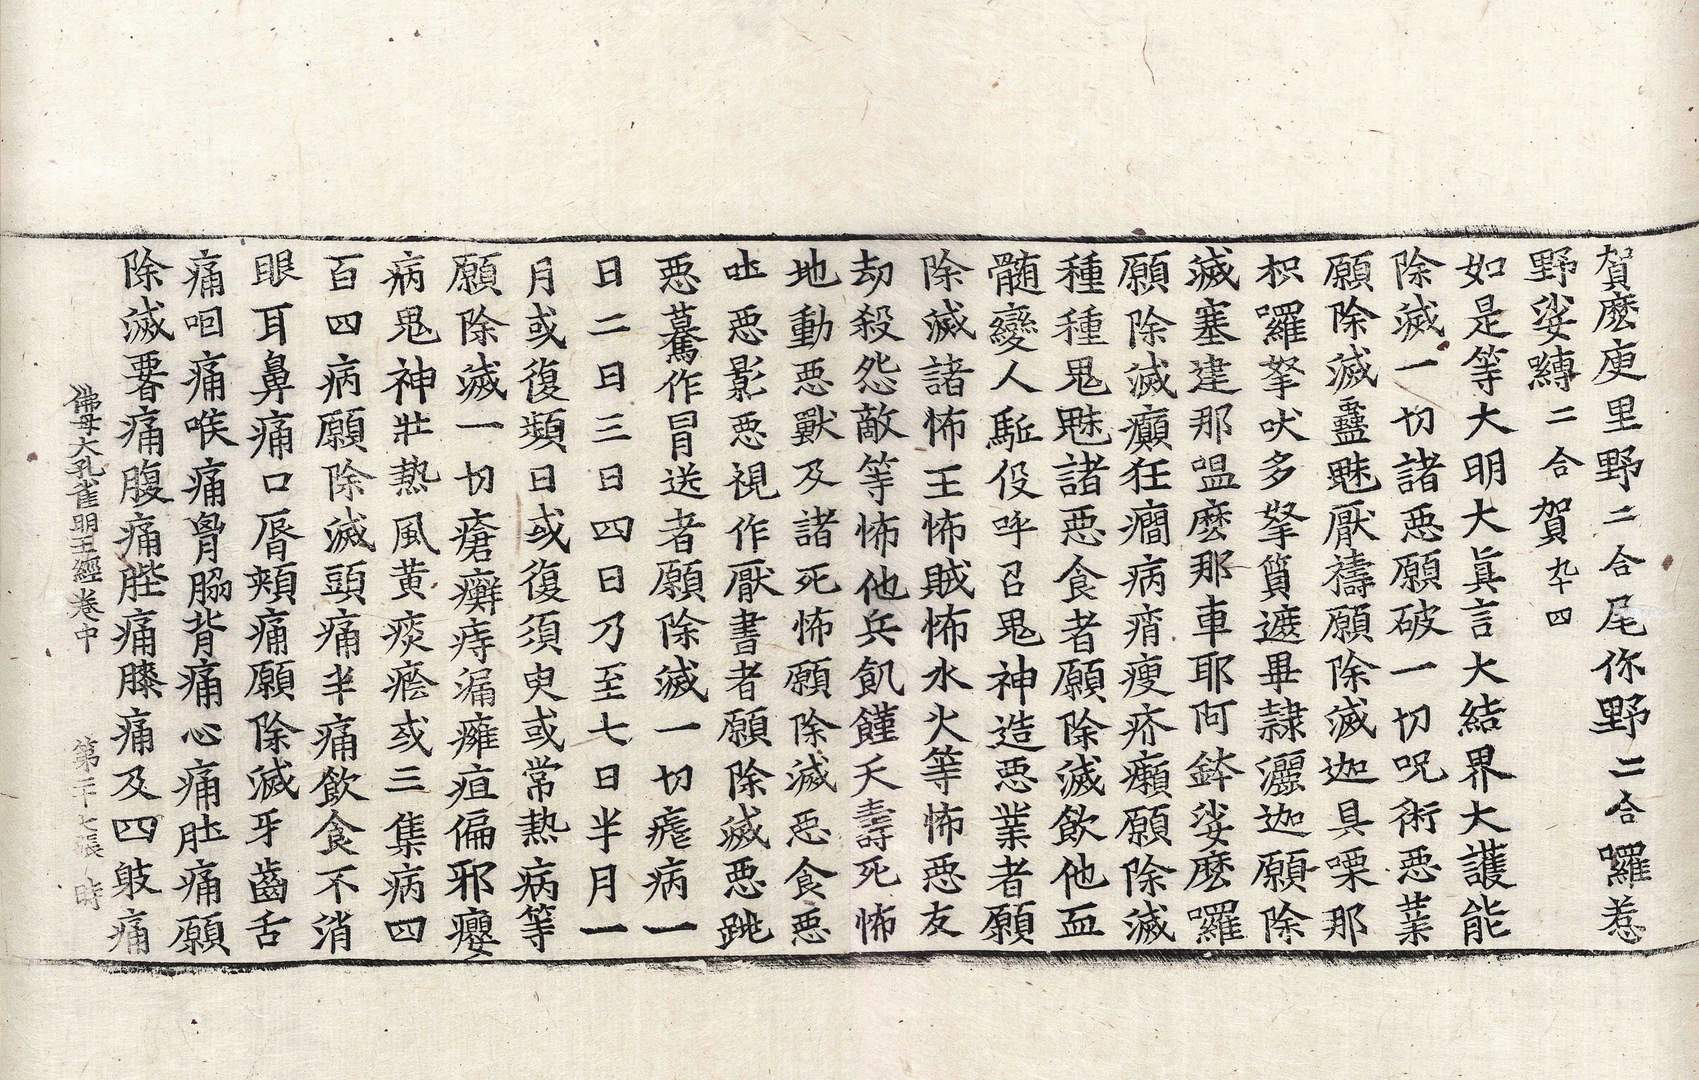 賀麽庾里野二合尾你野二合囉惹
野娑嚩二合賀九十四
如是等大明大眞言大結界大護能
除滅一切諸惡願破一切呪術惡業
願除滅蠱魅厭禱願除滅迦具嘌那
枳囉拏吠多拏質遮畢隷灑迦願除
滅塞建那嗢麽那車耶阿鉢娑麽囉
願除滅癲狂癎病痟瘦疥癩願除滅
種種鬼魅諸惡食者願除滅飮他血
髓變人駈役呼召鬼神造惡業者願
除滅諸怖王怖賊怖水火等怖惡友
劫殺怨敵等怖他兵飢饉夭壽死怖
地動惡獸及諸死怖願除滅惡食惡
吐惡影惡視作厭書者願除滅惡跳
惡驀作冒送者願除滅一切瘧病一
日二日三日四日乃至七日半月一
月或復頻日或復須臾或常熱病等
願除滅一切瘡癬痔漏癰疽偏邪癭
病鬼神壯熱風黄痰癊或三集病四
百四病願除滅頭痛半痛飮食不消
眼耳鼻痛口脣頰痛願除滅牙齒舌
痛咽痛喉痛胷脇背痛心痛肚痛願
除滅腰痛腹痛䏶痛膝痛及四肢痛
佛母大孔雀明王經卷中 第二十七張 時